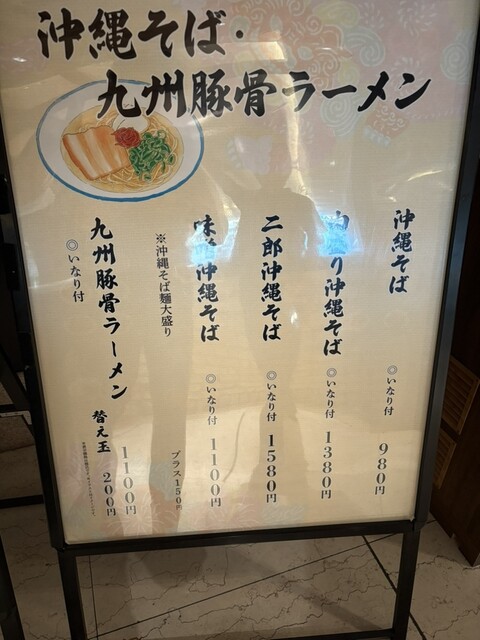 沖縄そば・
九州豚骨ラーメン
沖縄そば
◎いなり付
980円
り沖縄そば
◎いなり付
1380円
二郎沖縄そば
◎いなり付
1580円
味噌沖縄そば
◎いなり付
1100円
※沖縄そば麺大盛り
プラス150円
九州豚骨ラーメン
◎いなり付
1100円
替え玉
200円